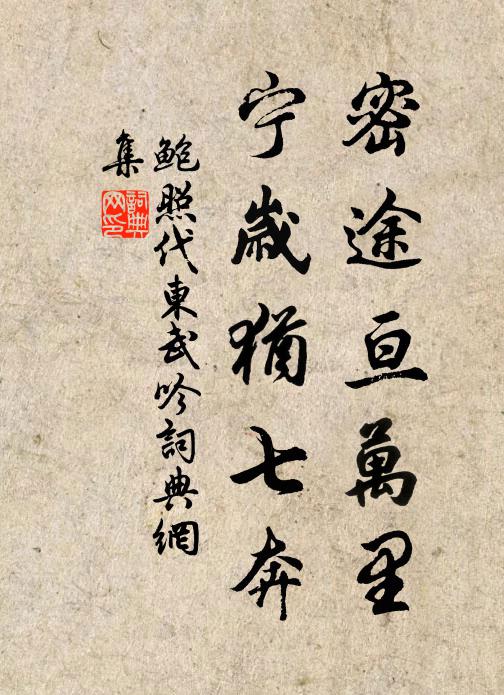 密途亘萬里
宁歳猶七奔
鲍照代東武吟詞典網
集
詞典
网印